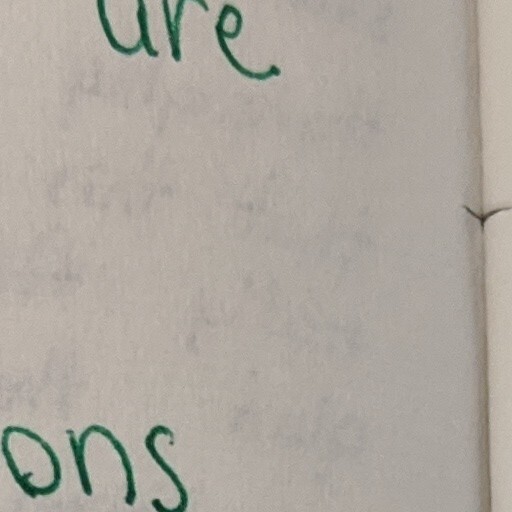 are
ons